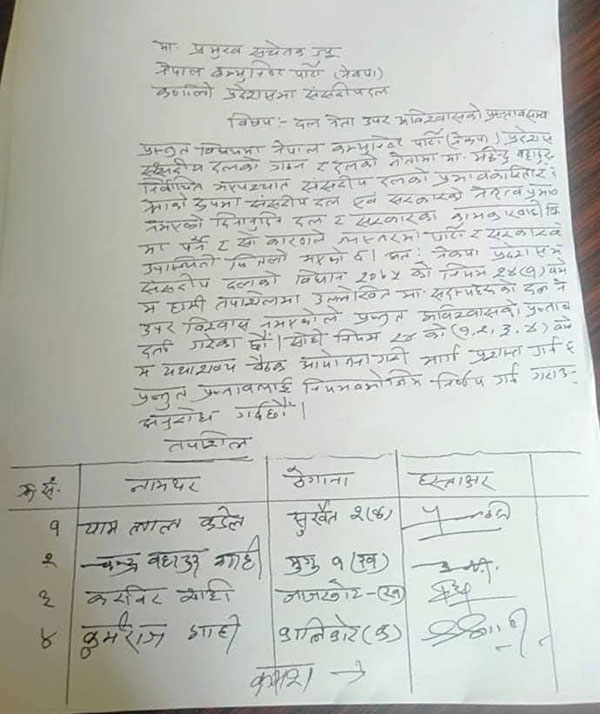 मा. प्रमुख सचेतक ज्यू
नेपाल कम्युनिष्ट पार्टी (नेकपा)
कर्णाली प्रदेशसभा संसदीय दल
विषय:- दल नेता उपर अविश्वासको प्रस्ताव
प्रस्तुत विषयमा नेपाल कम्युनिष्ट पार्टी (नेकपा) प्रदेशसभा
संसदीय दलको गठन र दलको नेतामा मा. महेन्द्र बहादुर
निर्वाचित भएपश्चात संसदीय दलको प्रभावकारिता र
रुपमा संसदीय दल एवं सरकारको नेतृत्व प्रभाव
नभएको दिनानुदिन दल र सरकारका कामकारवाही
मा पर्ने र सो कारणले पार्टी र सरकारको
उपस्थिती भएको छ। अत: नेकपा प्रदेशसभा
संसदीय दलको विधान २०७५ को नियम २४(१) बमो
म हामी तपशिलमा उल्लेखित मा. सदस्यहरु दल ने
उपर विश्वास नभएकोले प्रस्तुत अविश्वासको प्रस्ताव
दर्ता गरेका छौं। सोही नियम २४ को (१,२,३,४) बमो
म यथाशक्य बैठक आयोजना गरी मार्ग प्रशस्त गर्न र
प्रस्तुत प्रस्तावलाई नियमबमोजिम निर्णय गर्न गराउन
अनुरोध गर्दछौं।
तपशिल
क्र.सं. नामथर ठेगाना हस्ताक्षर
१ याम लाल कंडेल सुर्खेत २(क)
२ चन्द्र बहादुर शाही मुगु १(ख)
३ करविर शाही जाजरकोट-(ख)
४ कुर्मराज शाही कालिकोट (क)
क्रमश: →